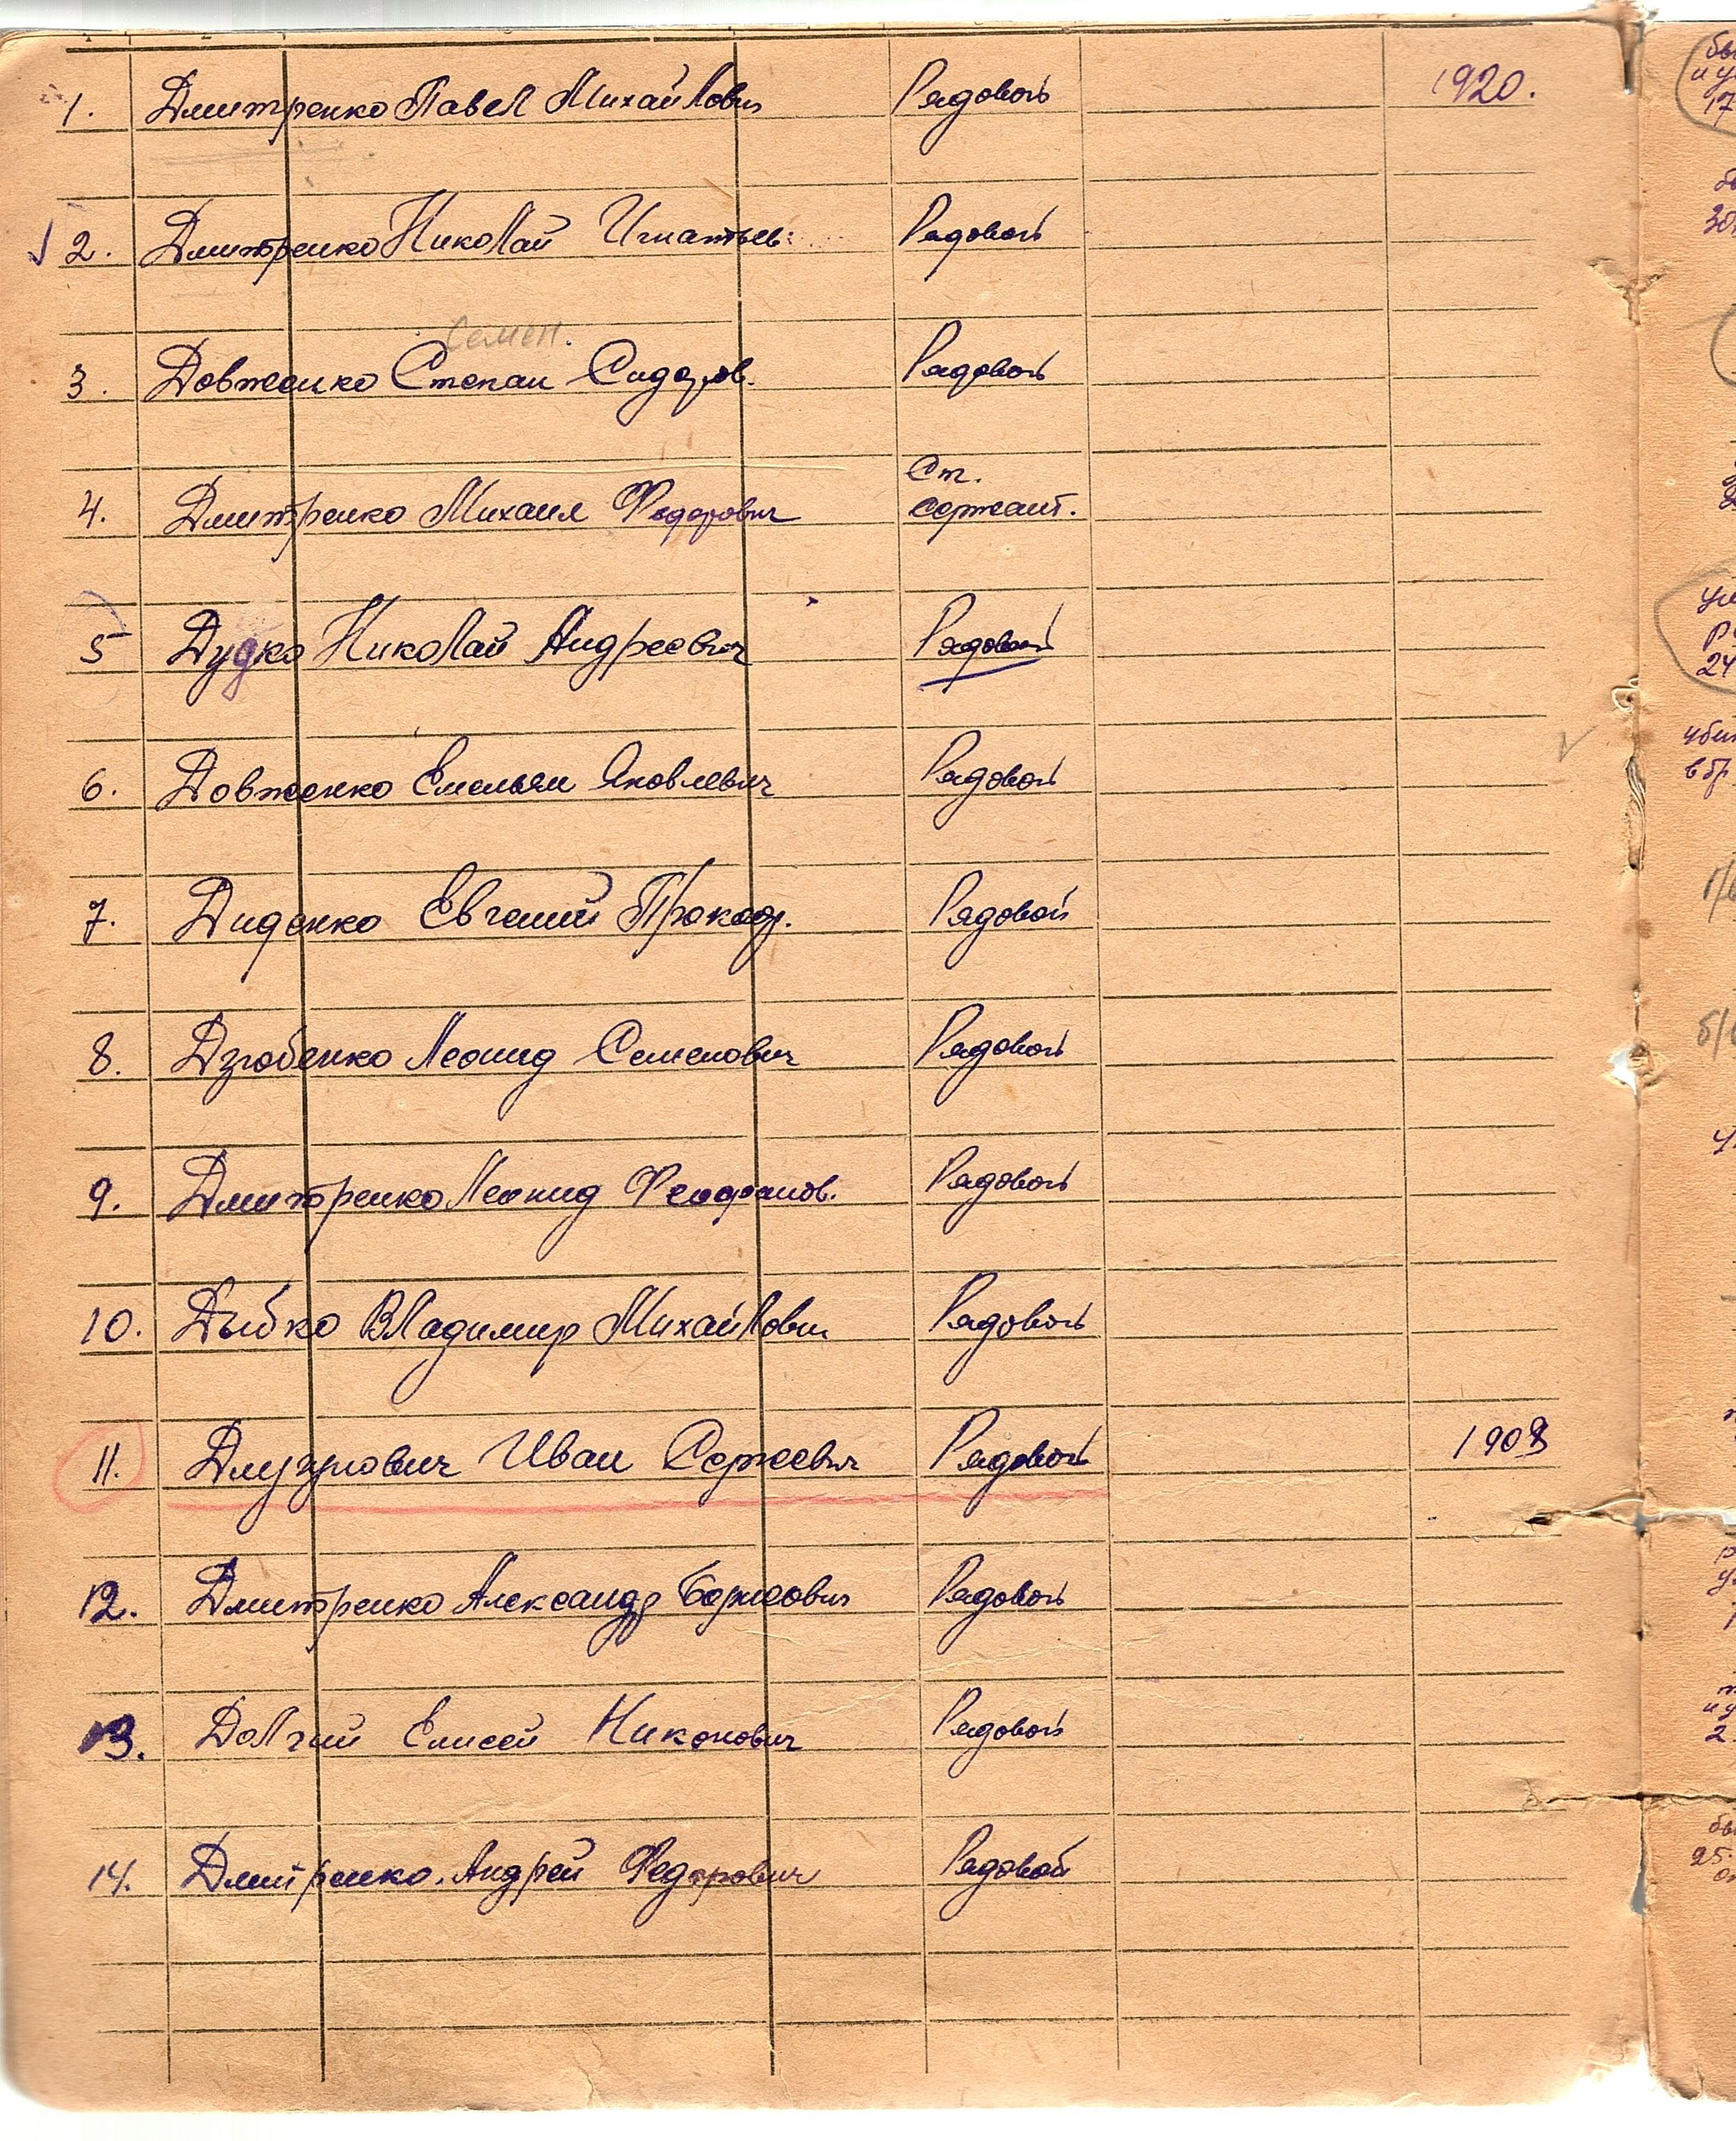 1. Дмитренко Павел Михайлович Рядовой 1920.
2. Дмитренко Николай Игнатьев. Рядовой
Семен.
3. Довженко Степан Сидоров. Рядовой
Ст.
4. Дмитренко Михаил Федорович сержант.
5 Дудко Николай Андреевич Рядовой
6. Довженко Емельян Яковлевич Рядовой
7. Диденко Евгений Прокоф. Рядовой
8. Дзюбенко Леонид Семенович Рядовой
9. Дмитренко Леонид Феофанов. Рядовой
10. Дыбко Владимир Михайлович Рядовой
11. Иван Сергеевич Рядовой
12. Дмитренко Александр Борисович Рядовой
13. Долгий Елисей Никонович Рядовой
14. Дмитренко Андрей Федорович Рядовой